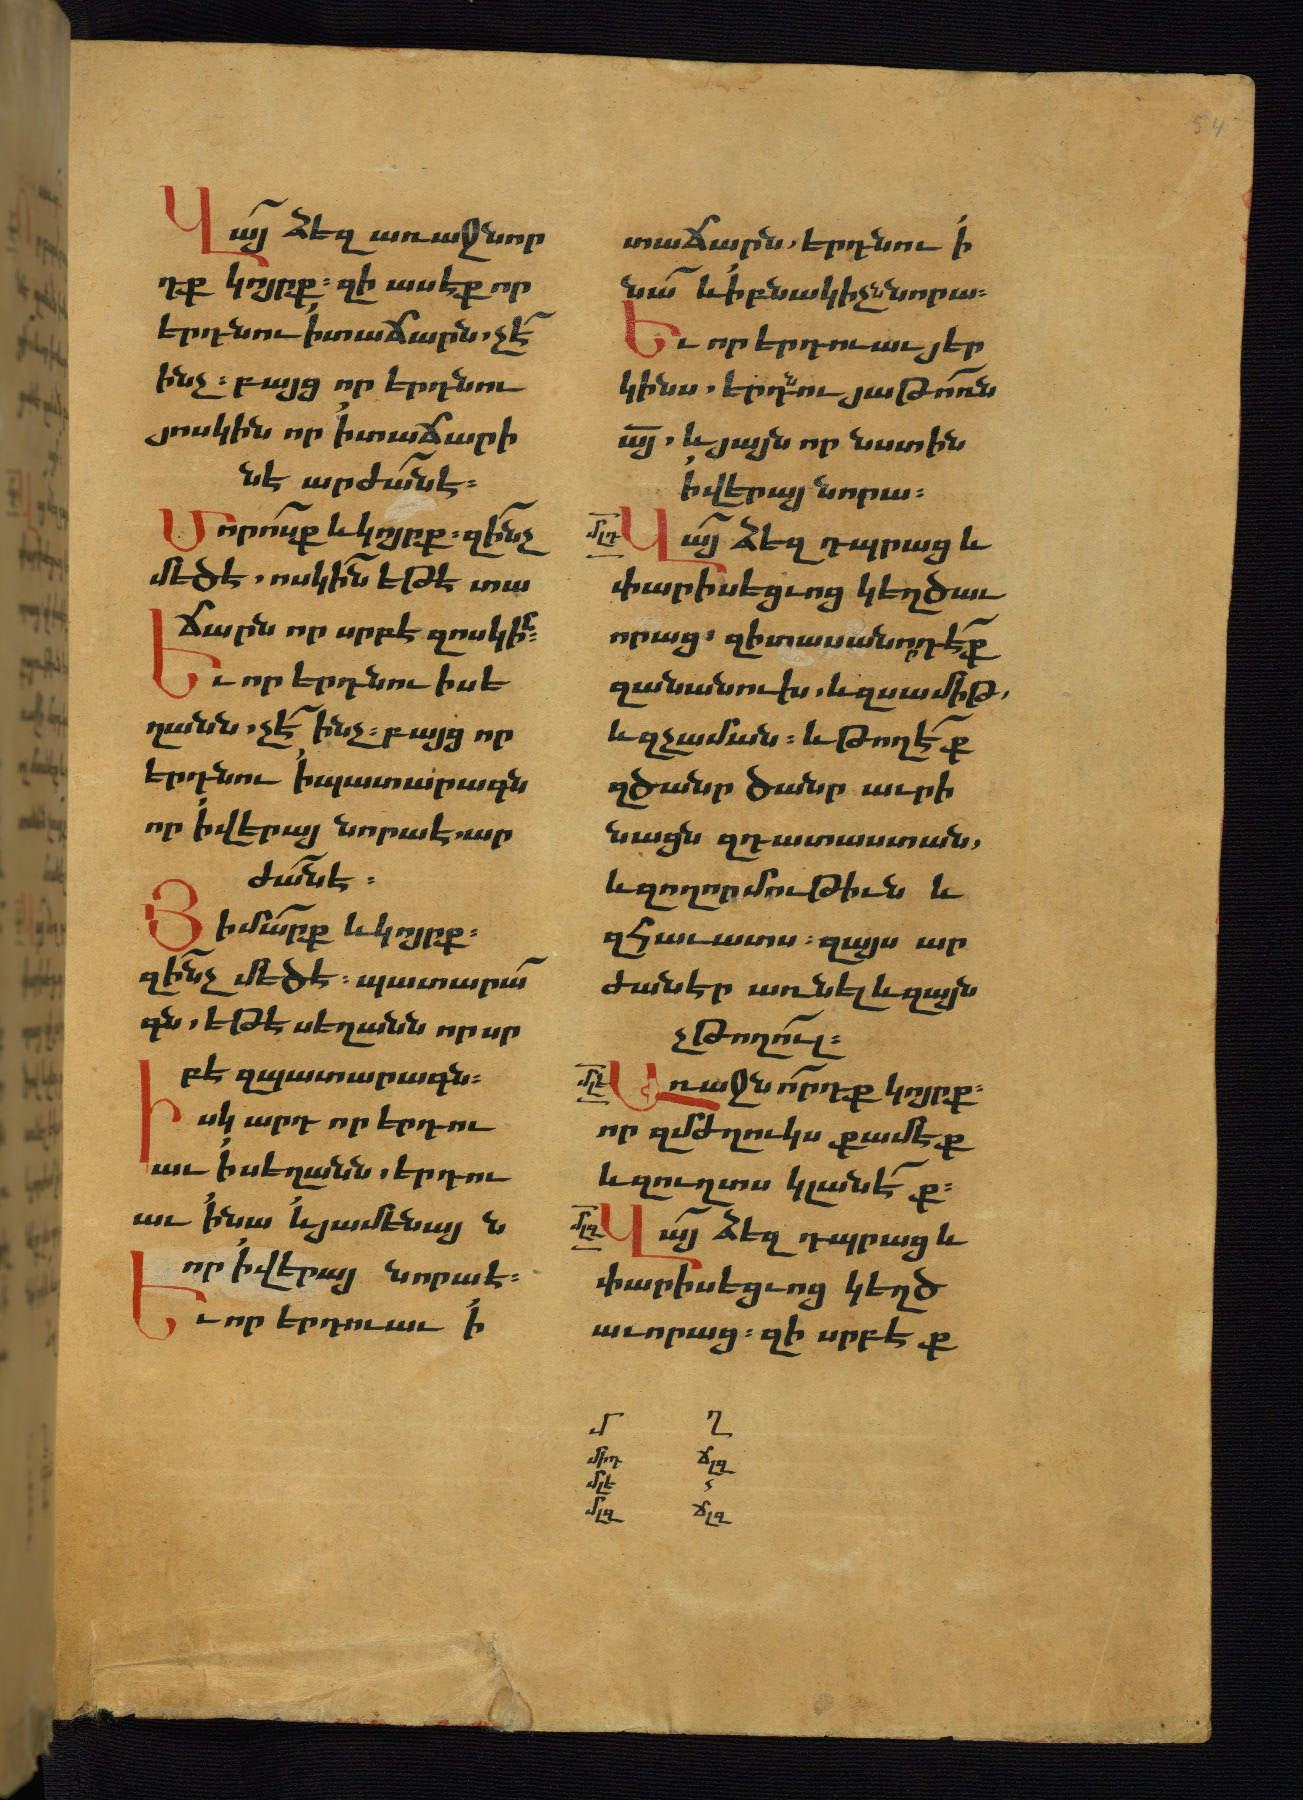 54
Վա՜յ ձեզ առաջնոր
դք կոյրք։ զի ասէք որ
երդնու ի տաճարն, չէ՜
ինչ։ բայց որ երդնու
յոսկին որ ի տաճարի
նէ արժա՜ն է։
Մորո՜սք և կոյրք։ զի՜նչ
մեծ է, ոսկի՜ն եթէ տա
ճարն որ սրբէ զոսկին։
Եւ որ երդնու ի սե
ղանն, չէ՜ ինչ։ բայց որ
երդնու ի պատարագն
որ ի վերայ նորա է, ար
ժա՜ն է։
Յիմա՜րք և կոյրք։
զի՜նչ մեծ է։ պատարա՜
գն, եթէ սեղանն որ սր
բէ զպատարագն։
Իսկ արդ որ երդու
աւ ի սեղանն, երդու
աւ ի նա և յամենայ ն
որ ի վերայ նորա է։
Եւ որ երդուաւ ի
տաճարն, երդնու ի
նա՜ և ի բնակիչն նորա։
Եւ որ երդուաւ յեր
կինս, երդնու յաթոռն
ա՜յ, և յայն որ նստին
ի վերայ նորա։
մլդ Վա՜յ ձեզ դպրաց և
փարիսեցւոց կեղծաւ
որաց, զի տասանորդէ՜ք
զանանուխ, և զսամիթ,
և զչաման։ և թողէ՜ք
զծանր ծանր աւրի
նացն զդատաստան,
և զողորմութիւն և
զհաւատս։ զայս ար
ժան էր առնել և զայն
չթողո՜ւլ։
մլե Առաջնո՜րդք կոյրք։
որ զմժղուկս քամէք
և զուղտս կլանէ՜ք։
մլզ Վա՜յ ձեզ դպրաց և
փարիսեցւոց կեղծ
աւորաց։ զի սրբէք
մ ղ
մլդ ճլզ
մլե
մլզ ճլզ